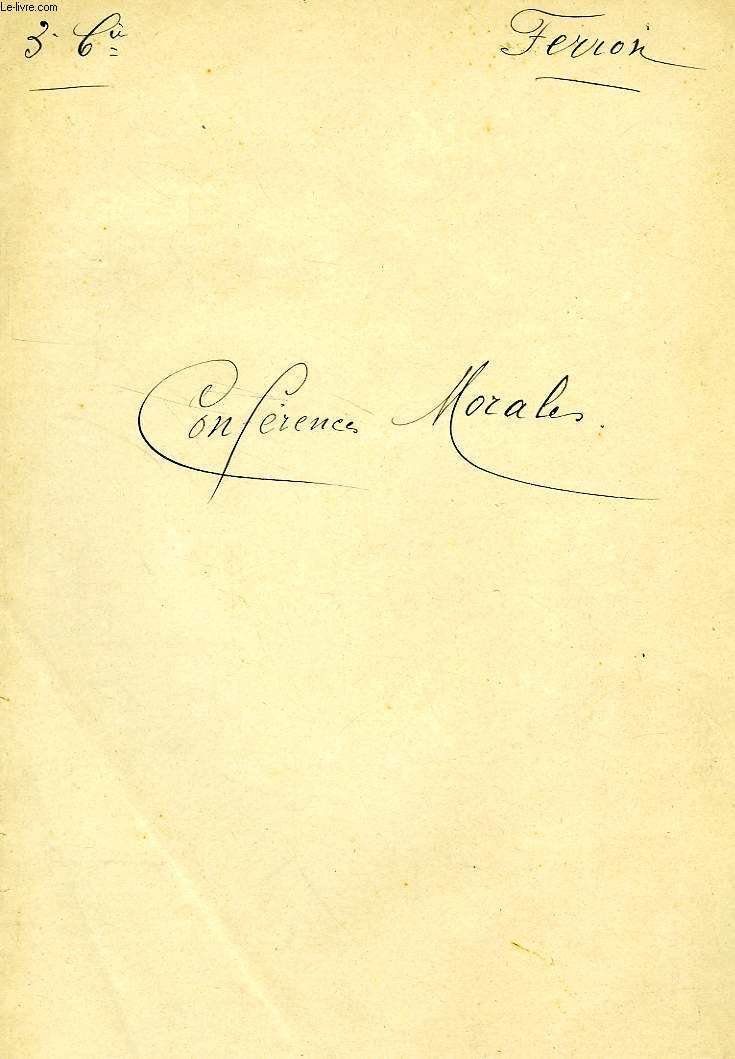 Le-livre.com
3e Cie Ferron
Conférences Morales.